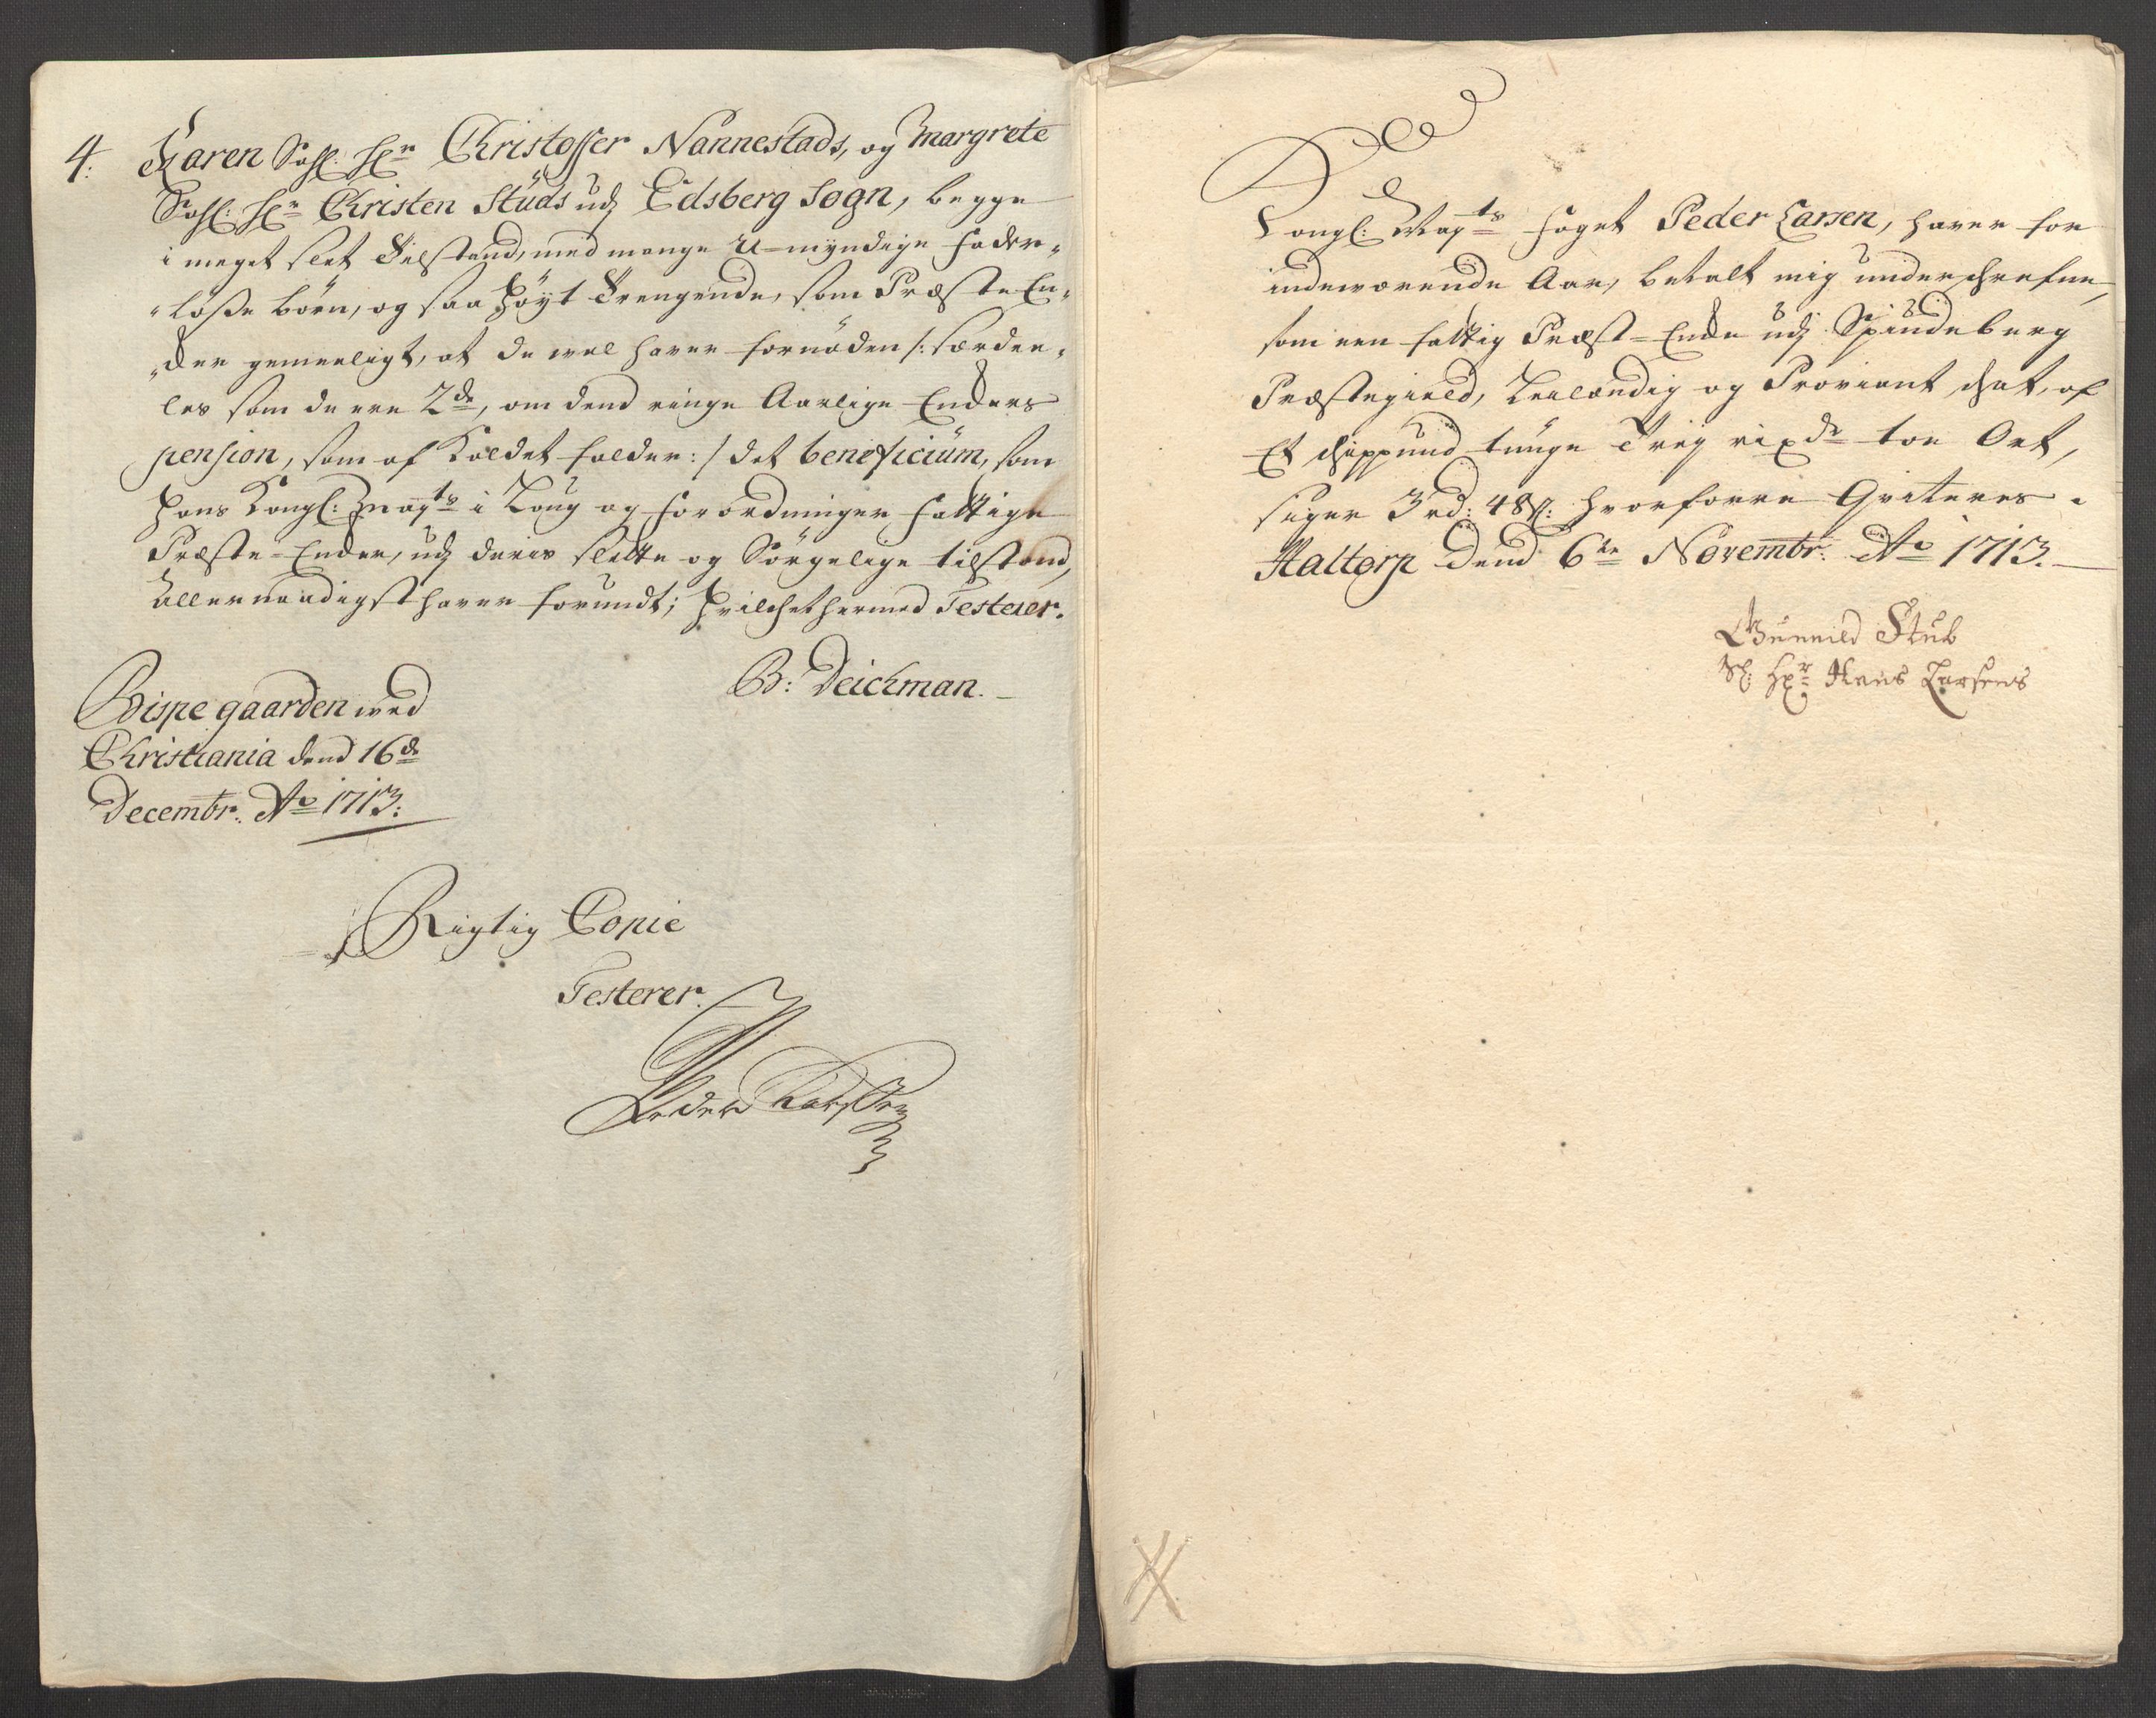 4. Karen Sahl: Hr Christoffer Nannestads, og Margrete
Sahl: Hr Christen Stüds udj Edsberg Sogn, begge
i meget slet Tilstand, med mange U-myndige fader-
løsse børn, og saa Høyt Trengende, som Præste En-
der gemeenligt, at de vel haver fornøden /: særdee-
les som de ere 2de, om dend ringe Aarlige Enckes
pension, som af Kaldet falder :/ det beneficium, som
Hans Kongl: Mayts i Loug og forordninger fattige
Præste-Encker, udj deris slette og Sørgelige tilstand,
Allernaadigst haver forundt; Hvilchet hermed Testerer.
B: Deichman.
Bispegaarden ved
Christiania dend 16de
Decembr. Ao 1713:
Rigtig Copie
Testerer
Peder Larssen
Kongl: Mayts foget Peder Larsen, haver for
indeværende Aar, betalt mig underschrefne,
som een fattig Præst-Encke udj Spündeberg
Præstegield, Leilændig og Proviant schat, af
Et schippund tunge Trej rixdr toe Ort,
siger 3 rd: 48 s: hvorforre Qviteres.
Haltorp dend 6te Novembr. Ao 1713.
Gunnild Stub
Sl: Hr Hans Larsens